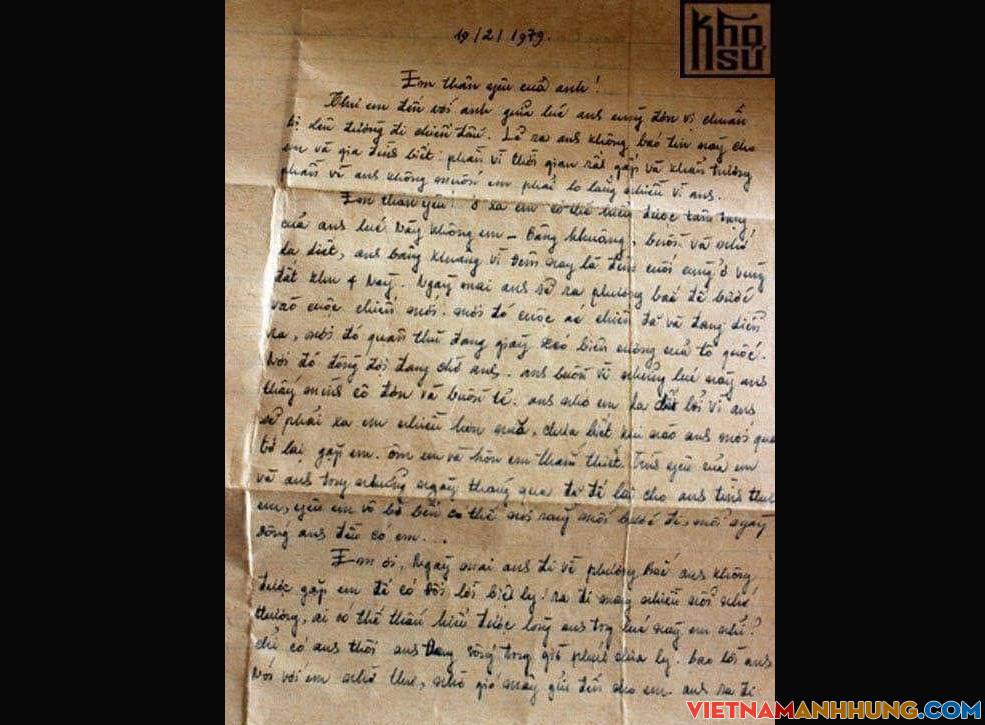 KHO
SỬ
19/2/1979.
Em thân yêu của anh!
Thư em đến với anh giữa lúc anh cùng đơn vị chuẩn
bị lên đường đi chiến đấu. Lẽ ra anh không báo tin này cho
em và gia đình biết: phần vì thời gian rất gấp và khẩn trương
phần vì anh không muốn em phải lo lắng nhiều vì anh.
Em thân yêu! ở xa em có thể hiểu được tâm trạng
của anh lúc này không em - Bâng khuâng, buồn và nhớ
da diết, anh bâng khuâng vì đêm nay là đêm cuối cùng ở vùng
đất khu 4 này. Ngày mai anh sẽ ra phương bắc để bước
vào cuộc chiến mới. nơi đó cuộc chiến đã và đang diễn
ra, nơi đó quân thù đang giày xéo biên cương của tổ quốc.
Nơi đó đồng đội đang chờ anh. anh buồn vì những lúc này anh
thấy mình cô đơn và buồn tẻ. anh nhớ em da diết bởi vì anh
sẽ phải xa em nhiều hơn nữa, chưa biết khi nào anh mới quay
trở lại gặp em. ôm em và hôn em thắm thiết. Tình yêu của em
và anh trong những ngày tháng qua đã để lại cho anh tình thương
em, yêu em vô bờ bến có thể nói rằng mỗi bước đi, mỗi ngày
sống anh đều có em...
Em ơi, Ngày mai anh đi về phương Bắc anh không
được gặp em để có đôi lời biệt ly! ra đi mang nhiều nỗi nhớ
thương, ai có thể thấu hiểu được lòng anh trong lúc này em nhỉ?
chỉ có anh thôi anh đang sống trong giờ phút chia ly. bao lời anh
nói với em nhờ thư, nhờ gió mây gửi đến cho em. anh ra đi
VIETNAMANHHUNG.COM